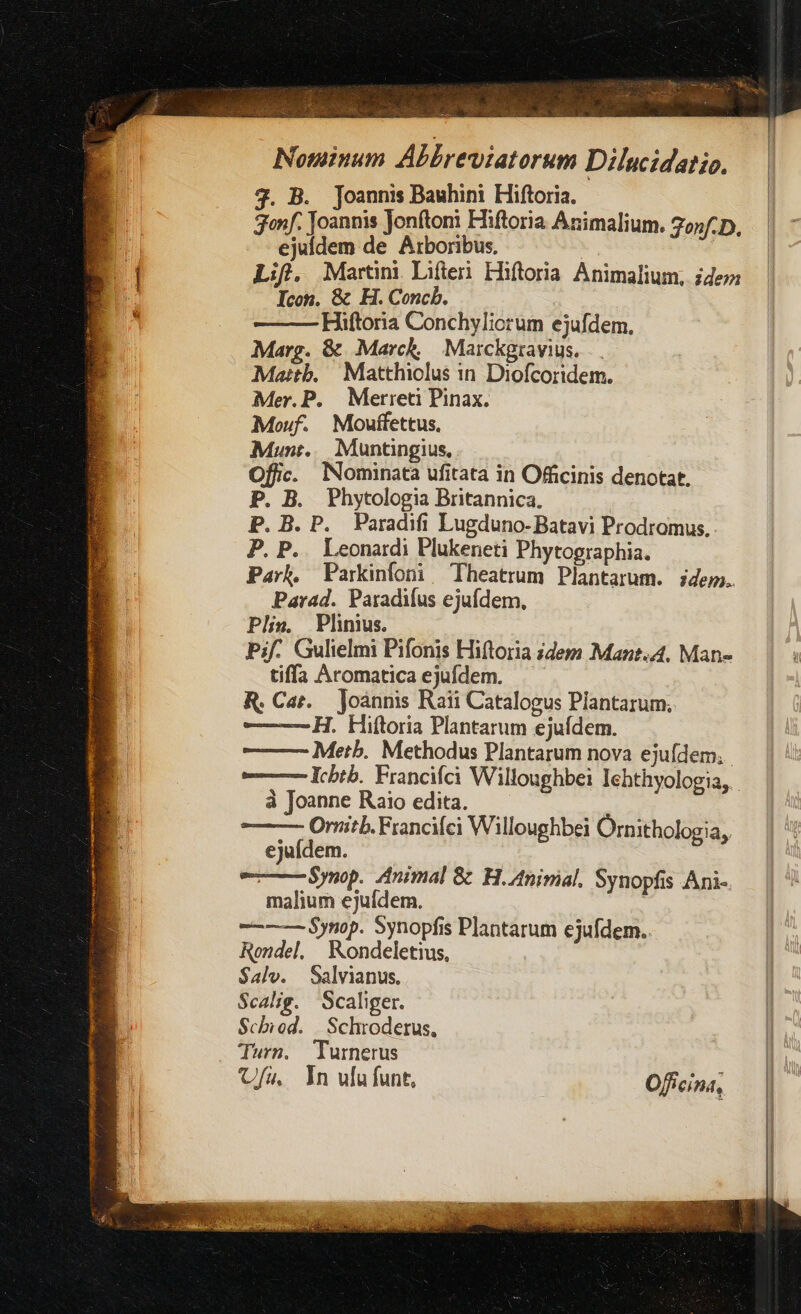 Nominum Abbreviatorum Dilucidatio.
J. B. Joannis Bauhini Hiſtoria.
Jonſ. Joannis Jonſtoni Hiſtoria Animalium. Jonſ. D.
ejuſdem de Arboribus.
Liſt. Martini Liſteri Hiſtoria Animalium, idem
Icon. & H. Conch.
——— Hiſtoria Conchyliorum ejuſdem.
Marg. & Marck. Marckgravius.
Matth. Matthiolus in Dioſcoridem.
Mer. P. Merreti Pinax.
Mouf. Mouffettus.
Munt. Muntingius.
Offic. Nominata uſitata in Officinis denotat.
P. B. Phytologia Britannica.
P. B. P. Paradiſi Lugduno-Batavi Prodromus.
P. P. Leonardi Plukeneti Phytographia.
Park. Parkinſoni Theatrum Plantarum. idem.
Parad. Paradiſus ejuſdem.
Plin. Plinius.
Piſ. Gulielmi Piſonis Hiſtoria idem Mant. A. Man-
tiſſa Aromatica ejuſdem.
R. Cat. Joannis Raii Catalogus Plantarum.
——— H. Hiſtoria Plantarum ejuſdem.
——— Meth. Methodus Plantarum nova ejuſdem.
——— Ichth. Franciſci Willoughbei Ichthyologia,
à Joanne Raio edita.
——— Ornith. Franciſci Willoughbei Ornithologia,
ejuſdem.
——— Synop. Animal & H. Animal. Synopſis Ani-
malium ejuſdem.
——— Synop. Synopſis Plantarum ejuſdem.
Rondel. Rondeletius.
Salv. Salvianus.
Scalig. Scaliger.
Schrod. Schroderus.
Turn. Turnerus
Uſu. In uſu ſunt.
Officina,